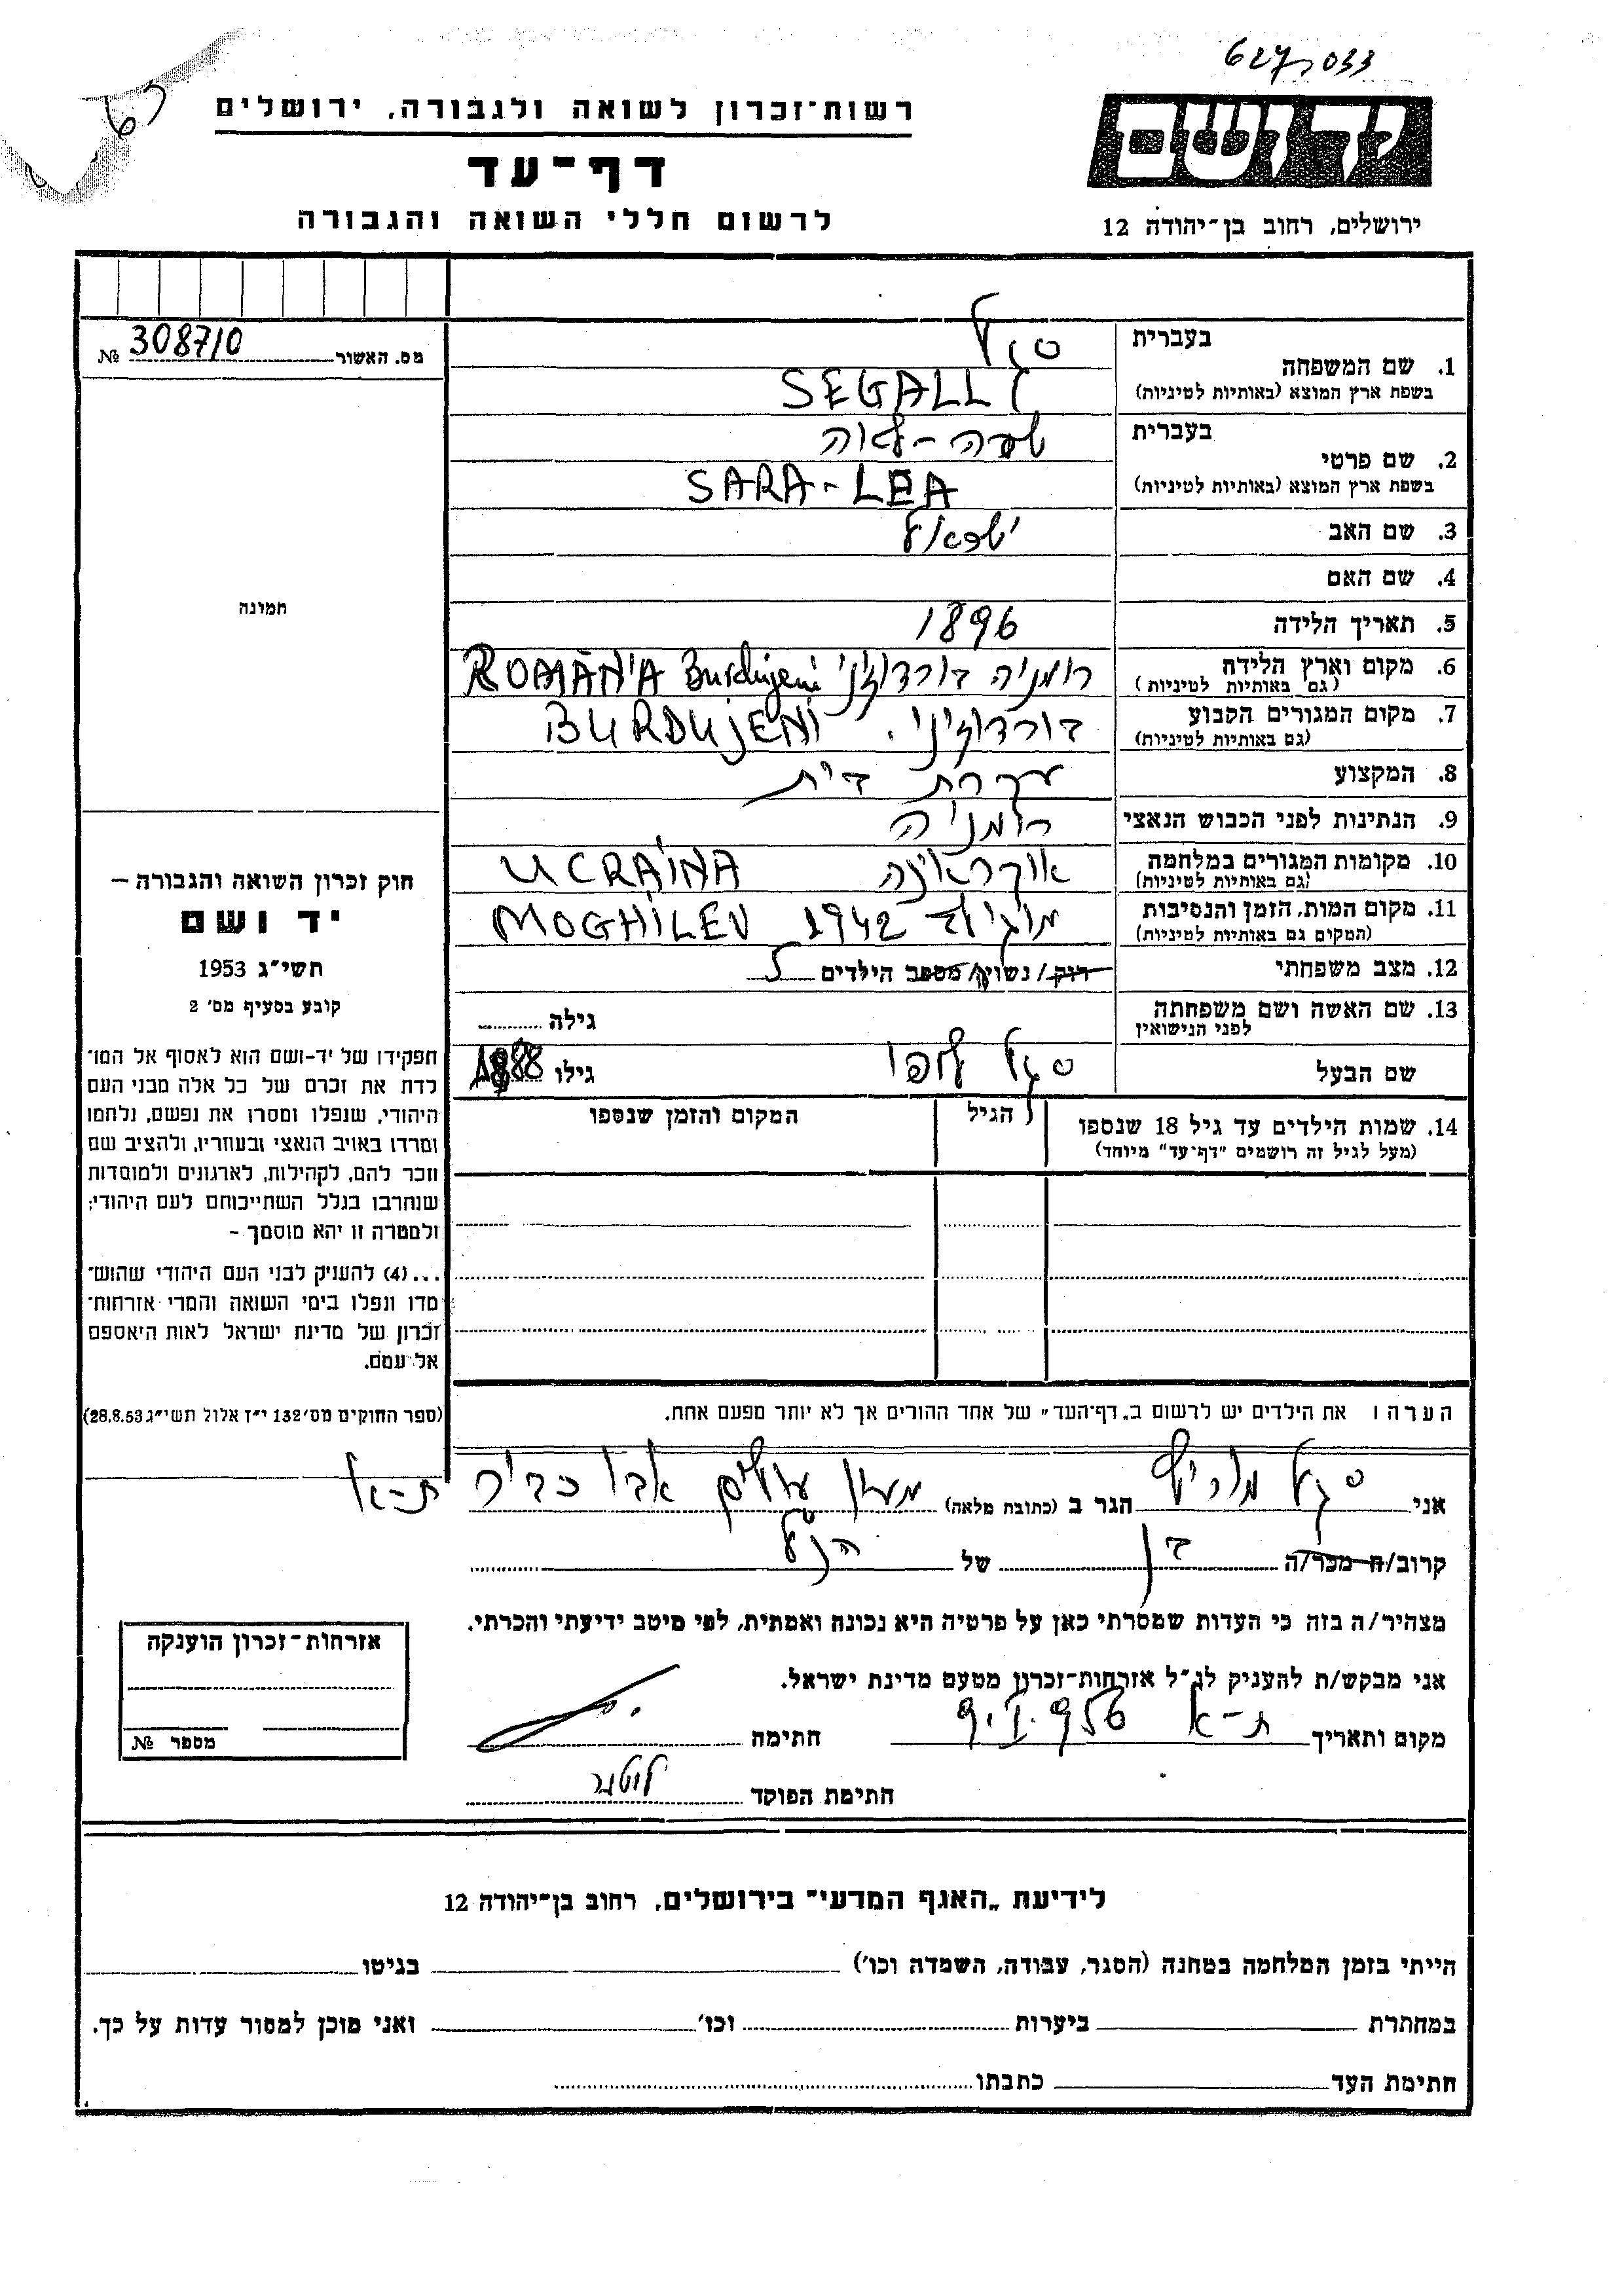 627,033
רשות־זכרון לשואה ולגבורה, ירושלים
דף־עד
לרשום חללי השואה והגבורה
ידושם
ירושלים, רחוב בן־יהודה 12
מס. האשור № 308710
תמונה
1. שם המשפחה בעברית סגל
בשפת ארץ המוצא (באותיות לטיניות) SEGALL
2. שם פרטי בעברית שרה-לאה
בשפת ארץ המוצא (באותיות לטיניות) SARA-LEA
3. שם האב ישראל
4. שם האם
5. תאריך הלידה 1896
6. מקום וארץ הלידה (גם באותיות לטיניות) רומניה בורדוז'ני Burdujeni ROMÂNIA
7. מקום המגורים הקבוע (גם באותיות לטיניות) בורדוז'ני. BURDUJENI
8. המקצוע עקרת בית
9. הנתינות לפני הכבוש הנאצי רומניה
10. מקומות המגורים במלחמה (גם באותיות לטיניות) אוקראינה UCRAINA
11. מקום המות, הזמן והנסיבות (המקום גם באותיות לטיניות) מוגילב 1942 MOGHILEV
12. מצב משפחתי רוק/ נשוי/ מספר הילדים
13. שם האשה ושם משפחתה לפני הנישואין גילה
שם הבעל סגל גילו 1888
14. שמות הילדים עד גיל 18 שנספו (מעל לגיל זה רושמים "דף־עד" מיוחד) הגיל המקום והזמן שנספו
חוק זכרון השואה והגבורה –
יד ושם
תשי"ג 1953
קובע בסעיף מס׳ 2
תפקידו של יד-ושם הוא לאסוף אל המו־
לדת את זכרם של כל אלה מבני העם
היהודי, שנפלו ומסרו את נפשם, נלחמו
ומרדו באויב הנאצי ובעוזריו, ולהציב שם
וזכר להם, לקהילות, לארגונים ולמוסדות
שנחרבו בגלל השתייכותם לעם היהודי;
ולמטרה זו יהא מוסמך –
...(4) להעניק לבני העם היהודי שהוש־
מדו ונפלו בימי השואה והמרי אזרחות־
זכרון של מדינת ישראל לאות היאספם
אל עמם.
(ספר החוקים מס׳ 132 י״ז אלול תשי״ג 28.8.53)
הערה ו את הילדים יש לרשום ב„דף־העד" של אחד ההורים אך לא יותר מפעם אחת.
אני סגל הגר ב (כתובת מלאה) מעון עולים אבו כביר ת-א
קרוב/ה מכר/ה בן של הנ"ל
מצהיר/ה בזה כי העדות שמסרתי כאן על פרטיה היא נכונה ואמתית, לפי מיטב ידיעתי והכרתי.
אני מבקש/ת להעניק לנ״ל אזרחות־זכרון מטעם מדינת ישראל.
מקום ותאריך ת-א 9.I.956 חתימה
חתימת הפוקד
אזרחות־זכרון הוענקה
מספר №
לידיעת „האגף המדעי" בירושלים, רחוב בן־יהודה 12
הייתי בזמן המלחמה במחנה (הסגר, עבודה, השמדה וכו׳) בגיטו
במחתרת ביערות וכו׳ ואני מוכן למסור עדות על כך.
חתימת העד כתבתו